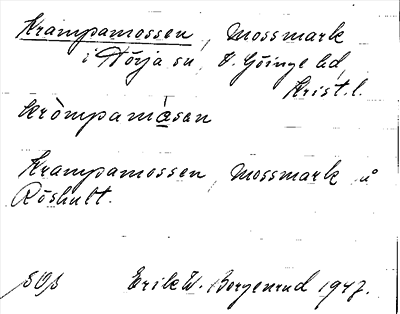 Krampamossen, Mossmark
i Nörja sn, V. Göinge hd,
Krist. l.
kròmpamåsan
Krampamossen, Mossmark å
Röshult.
Erik W. Borgenrud 1947.